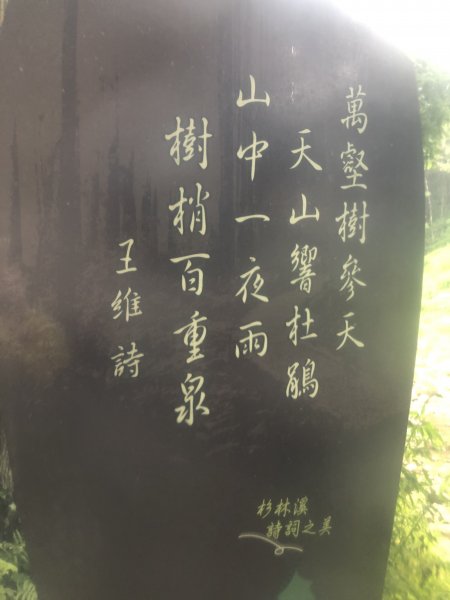 萬壑樹參天
天山響杜鵑
山中一夜雨
樹梢百重泉
王維詩
杉林溪
詩詞之美